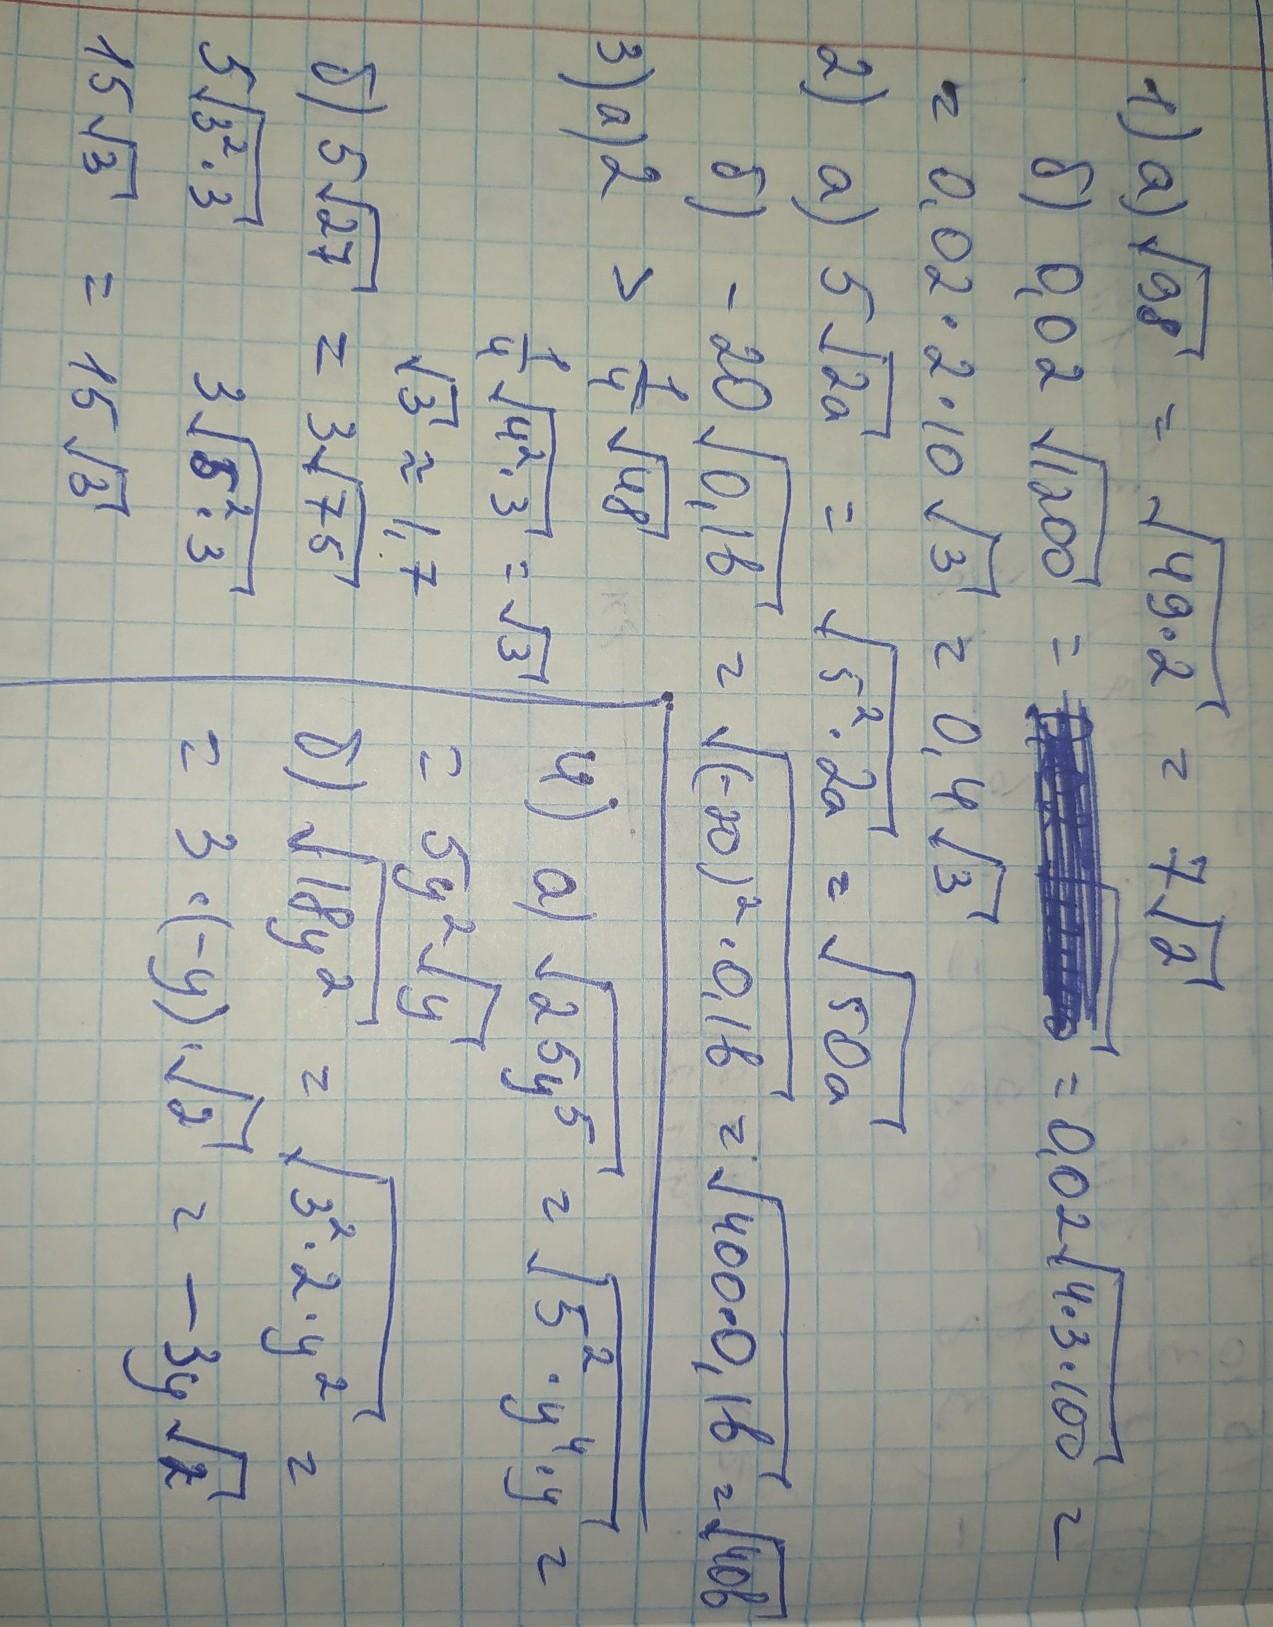 1) а) √98 = √49·2 = 7√2
б) 0,02 √1200 = = 0,02√4·3·100 =
= 0,02·2·10√3 = 0,4√3
2) а) 5√2a = √5²·2a = √50a
б) -20√0,1b = √(-20)²·0,1b = √400·0,1b = √40b
3) а) 2 > 1/4 √48
1/4 √4²·3 = √3
√3 ≈ 1,7
б) 5√27 = 3√75
5√3²·3 3√5²·3
15√3 = 15√3
4) а) √25y⁵ = √5²·y⁴·y =
= 5y²√y
б) √18y² = √3²·2·y² =
= 3·(-y)·√2 = -3y√2